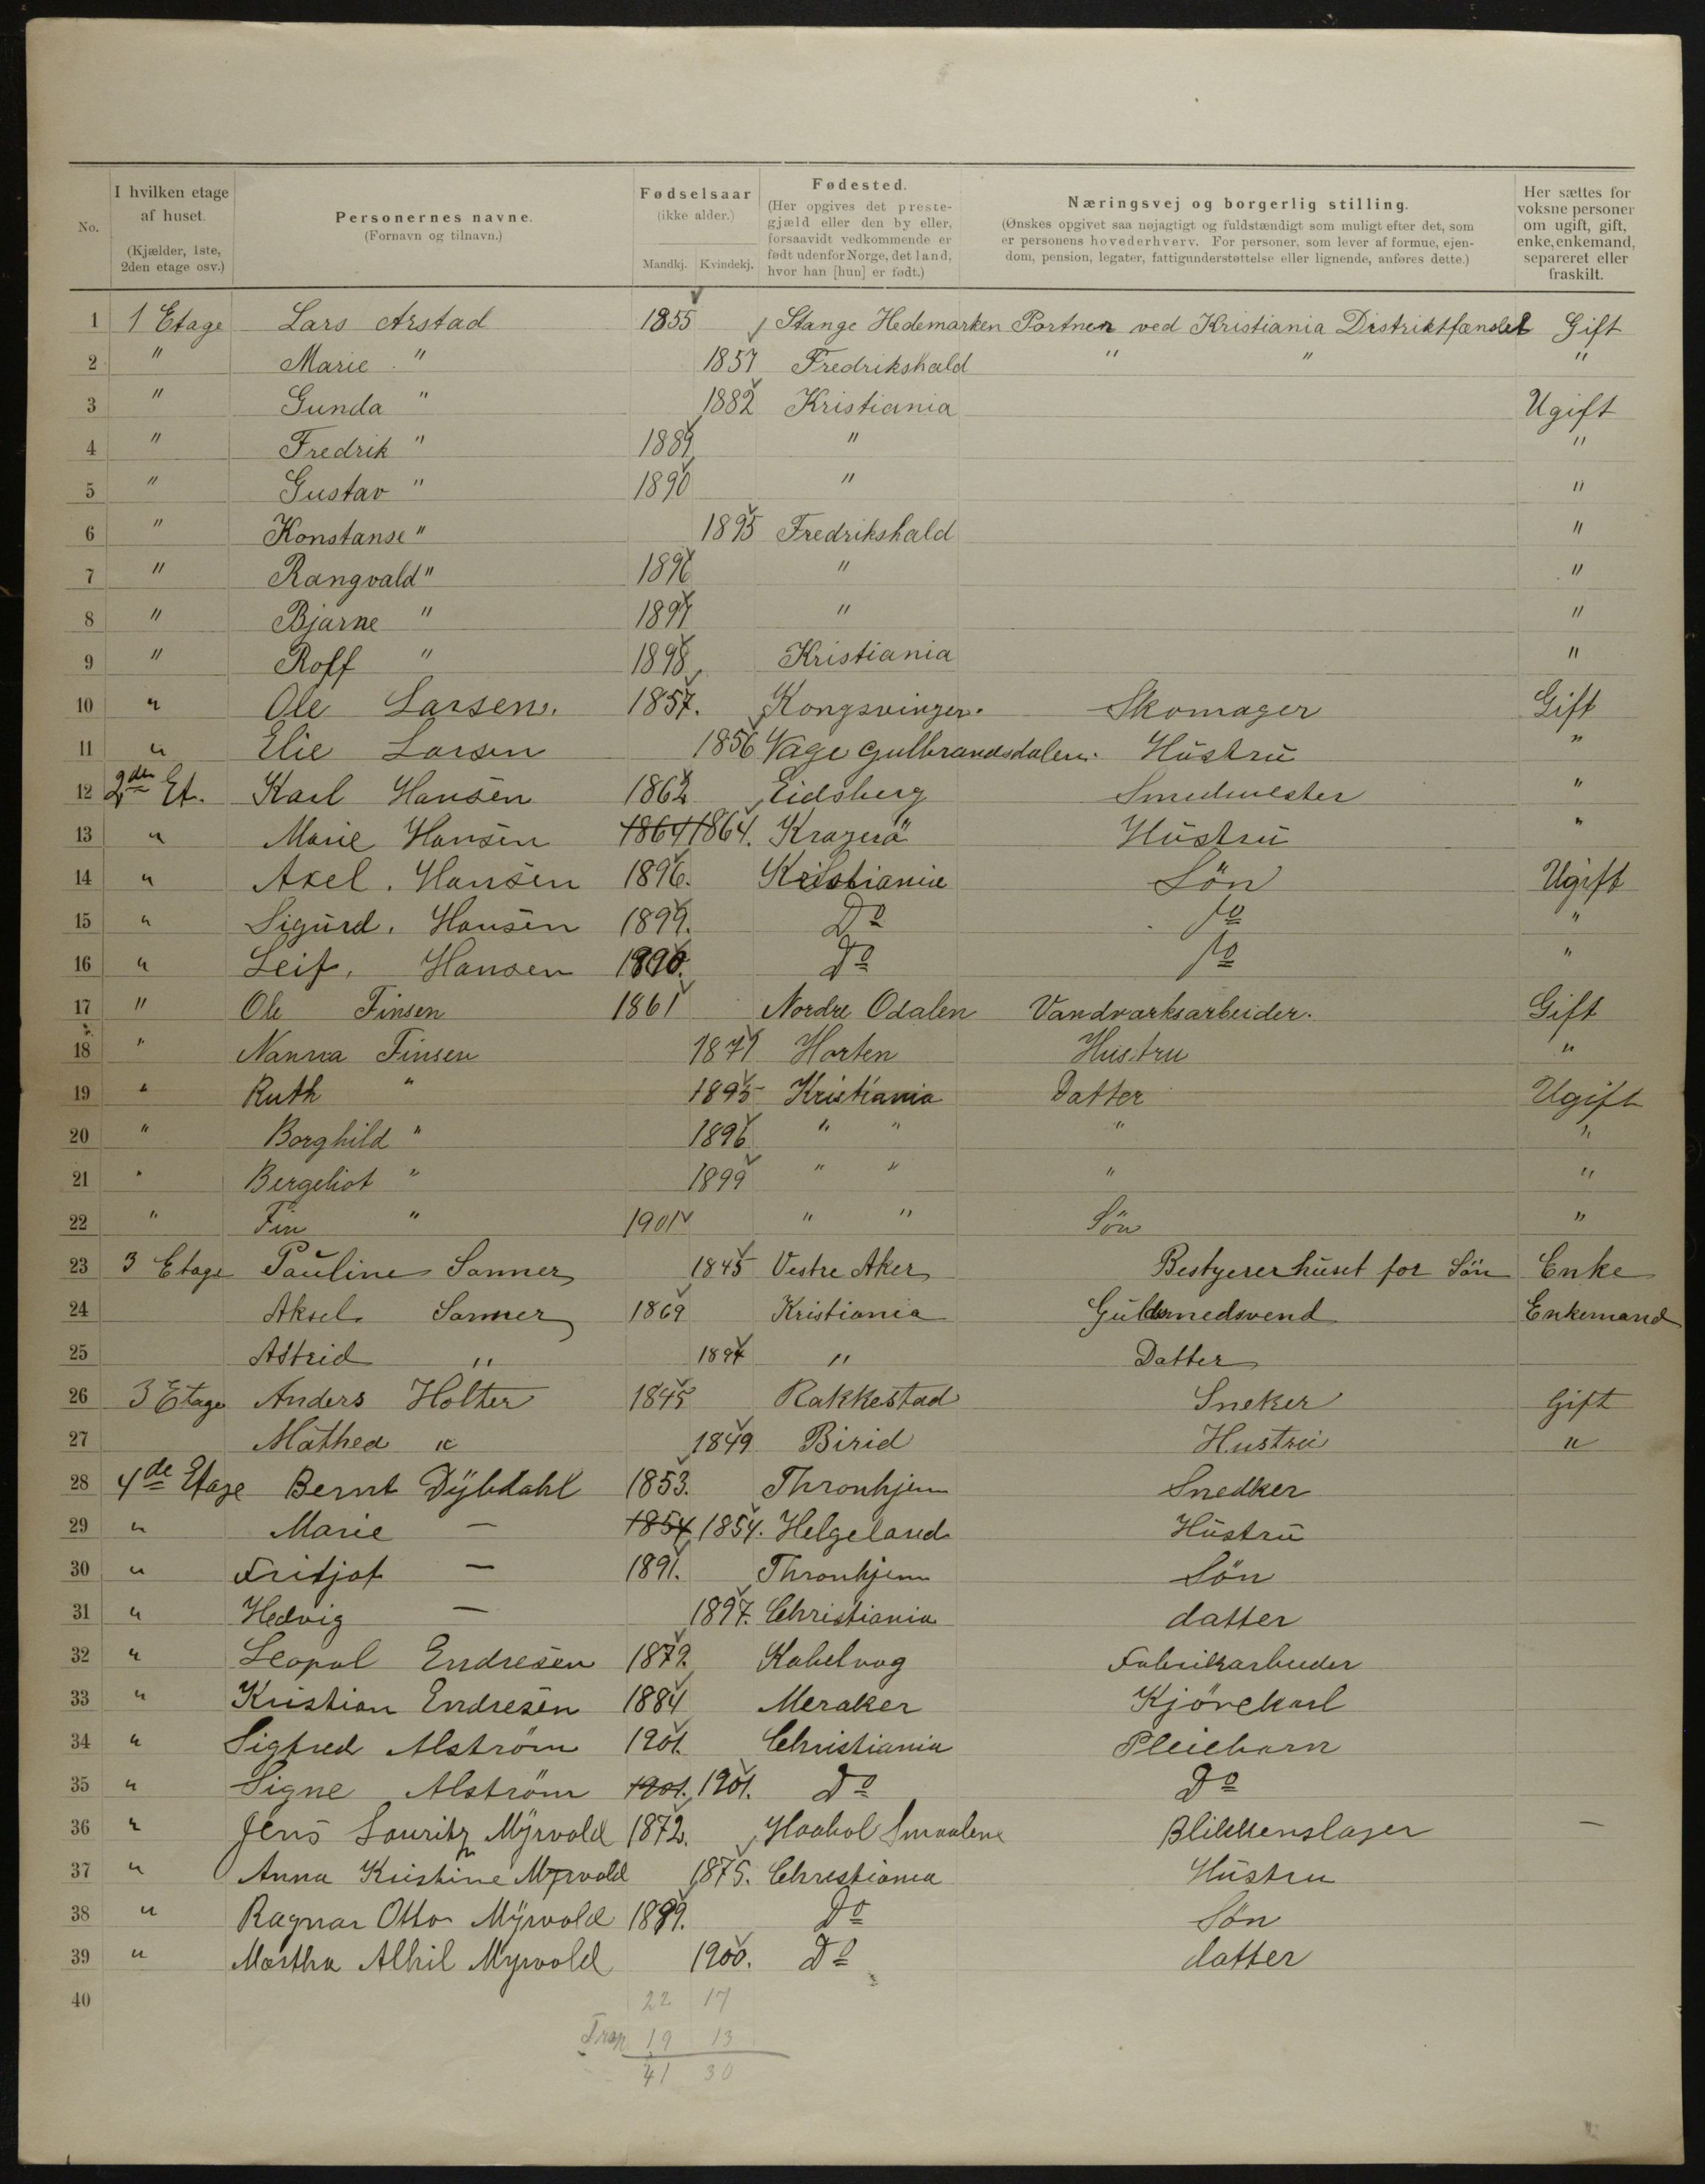 No.	I hvilken etage af huset. (Kjælder, 1ste, 2den etage osv.)	Personernes navne. (Fornavn og tilnavn.)	Fødselsaar (ikke alder.) Mandkj. Kvindekj.	Fødested. (Her opgives det prestegjæld eller den by eller, forsaavidt vedkommende er født udenfor Norge, det land, hvor han [hun] er født.)	Næringsvej og borgerlig stilling. (Ønskes opgivet saa nøjagtigt og fuldstændigt som muligt efter det, som er personens hovederhverv. For personer, som lever af formue, ejendom, pension, legater, fattigunderstøttelse eller lignende, anføres dette.)	Her sættes for voksne personer om ugift, gift, enke, enkemand, separeret eller fraskilt.
1 1 Etage Lars Arstad 1855 Stange Hedemarken Portner ved Kristiania Distriktfænslel Gift
2 " Marie " 1857 Fredrikshald " " "
3 " Gunda " 1882 Kristiania Ugift
4 " Fredrik " 1889 " "
5 " Gustav " 1890 " "
6 " Konstanse " 1895 Fredrikshald "
7 " Rangvald " 1896 " "
8 " Bjarne " 1897 " "
9 " Roff " 1898 Kristiania "
10 " Ole Larsen. 1857. Kongsvinger. Skomager Gift
11 " Elie Larsen 1856 Vage Gulbrandsdalen. Hustru "
12 2den Et. Karl Hansen 1862 Eidsberg Smedmester "
13 " Marie Hansen 1864 1864. Kragerö Hustru "
14 " Axel. Hansen 1896. Kristiania Sön Ugift
15 " Sigurd. Hansen 1899. Do Do "
16 " Leif. Hansen 1890. Do Do "
17 " Ole Finsen 1861 Nordre Odalen Vandværksarbeider. Gift
18 " Nanna Finsen 1871 Horten Hustru "
19 " Ruth " 1895 Kristiania Datter Ugift
20 " Borghild " 1896 " " " "
21 " Bergeliot " 1899 " " " "
22 " Fin " 1901 " " Sön "
23 3 Etage Pauline Sanner 1845 Vestre Aker Bestyerer huset for Sön Enke
24 Aksel Sanner 1869 Kristiania Guldsmedsvend Enkemand
25 Astrid " 1894 " Datter
26 3 Etage Anders Holter 1845 Rakkestad Sneker Gift
27 Mathea " 1849 Birid Hustru "
28 4de Etage Bernt Dybdahl 1853. Thronhjem Snedker
29 " Marie — 1854 1854. Helgeland Hustru
30 " Fritjof — 1891. Thronhjem Sön
31 " Hedvig — 1897. Christiania datter
32 " Leopol Endresen 1872. Kabelvog Fabrikarbeider
33 " Kristian Endresen 1884 Meraker Kjörekarl
34 " Sigfred Alström 1901. Christiania Pleiebarn
35 " Signe Alström 1901. 1901. Do Do
36 " Jens Lauritz Myrvold 1872. Haabol Smaalene Blikkenslager —
37 " Anna Kristine Myrvold 1875. Christiania Hustru
38 " Ragnar Otto Myrvold 1899. Do Sön
39 " Martha Alhil Myrvold 1900. Do datter
40 22 17
Trap 19 13
41 30